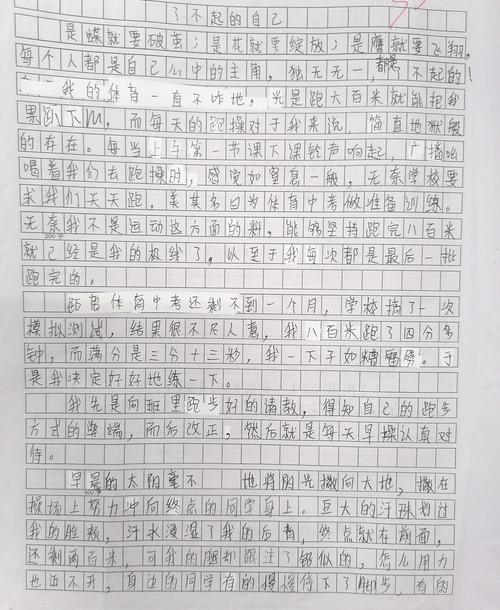 了不起的自己
是蝶就要破茧;是花就要绽放;是鹰就要飞翔,
每个人都是自己心中的主角,独一无二,都是了不起的!
我的体育一直不咋地,光是跑六百米就能把我
累趴下,而每天的跑操对于我来说,简直地狱般
的存在。每当上午第一节课下课铃声响起,广播吆
喝着我们去跑操时,感觉如窒息一般,无奈学校要
求我们天天跑,美其名曰为体育中考做准备训练。
无奈我不是运动这方面的料,能够坚持跑完八百米
就已经是我的极线了,以至于我每次都是最后一批
跑完的。
距离体育中考还剩不到一个月,学校搞了一次
模拟测试,结果很不尽人意,我八百米跑了四分多
钟,而满分是三分十三秒,我一下子如遭雷劈。于
是我决定好好地练一下。
我先是向班里跑步好的请教,得知自己的跑步
方式的弊端,而后改正,然后就是每天早操认真对
待。
早晨的太阳毫不 地将阳光撒向大地,撒在
操场上努力冲向终点的同学身上。巨大的汗珠划过
我的脸颊,汗水浸湿了我的后背,终点就在前面,
还剩两百米,可我的腿却跟注了铅似的,怎么用力
也迈不开,身边的同学有的慢慢停下了脚步,有的
200字
400字